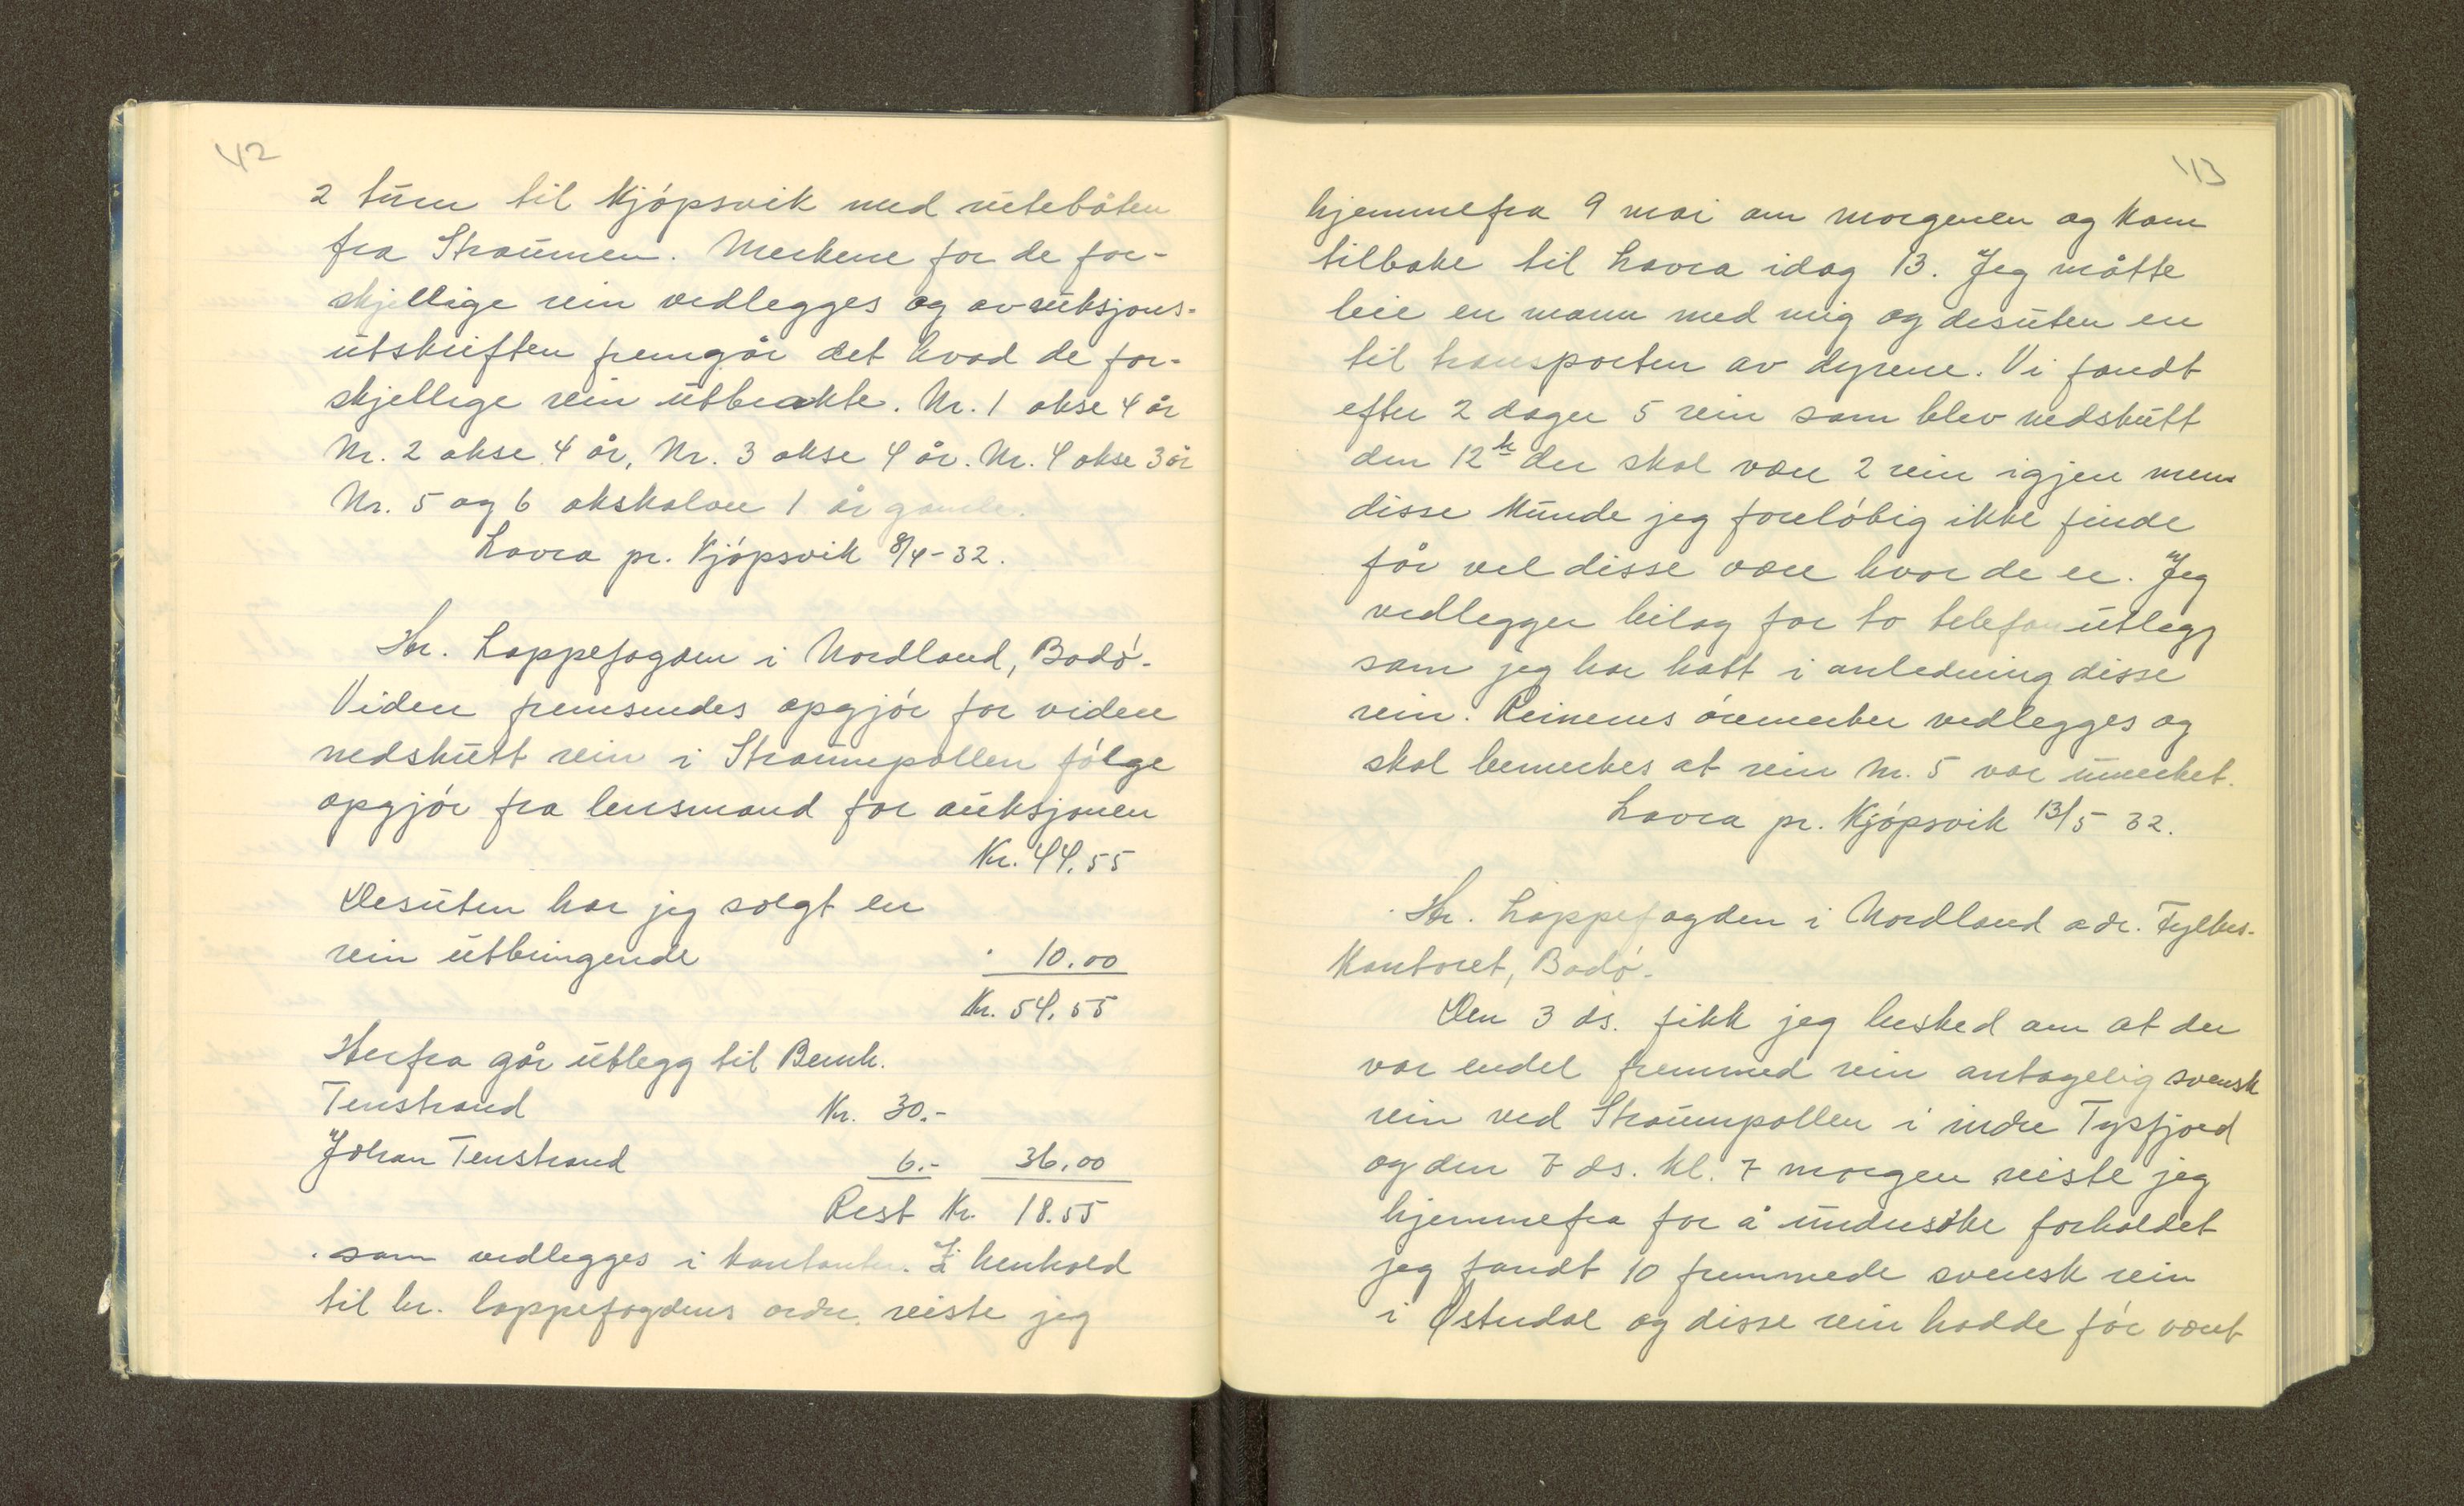 42
2 turer til Kjøpsvik med rutebåten
fra Straumen. Merkene for de for-
skjellige rein vedlegges og av auksjons-
utskriften fremgår det hvad de for-
skjellige rein utbrakte. Nr. 1 okse 4 år
Nr. 2 okse 4 år, Nr. 3 okse 4 år. Nr. 4 okse 3 år
Nr. 5 og 6 okskalver 1 år gamle.
Lavra pr. Kjøpsvik 8/4-32.
Hr. Lappefogden i Nordland, Bodø.
Videre fremsendes opgjør for videre
nedskutt rein i Straumpollen følge
opgjør fra lensmand for auksjonen
Kr. 44.55
Desuten har jeg solgt en
rein utbringende " 10.00
Kr. 54.55
Herfra går utlegg til Bernh.
Tenstrand Kr. 30.-
Johan Tenstrand 6.- 36.00
Rest Kr. 18.55
som vedlegges i kontanter. I henhold
til hr. lappefogdens ordre reiste jeg
43
hjemmefra 9 mai om morgenen og kom
tilbake til Lavra idag 13. Jeg måtte
leie en mann med mig og desuten en
til transporten av dyrene. Vi fandt
efter 2 dager 5 rein som blev nedskutt
den 12te der skal være 2 rein igjen men
disse kunde jeg foreløbig ikke finde
får vel disse være hvor de er. Jeg
vedlegger bilag for to telefonutlegg
som jeg har hatt i anledning disse
rein. Reinenes øremerker vedlegges og
skal bemerkes at rein Nr. 5 var umerket.
Lavra pr. Kjøpsvik 13/5 32.
Hr. Lappefogden i Nordland adr. Fylkes-
kontoret, Bodø.
Den 3 ds. fikk jeg besked om at der
var endel fremmed rein antagelig svensk
rein ved Straumpollen i indre Tysfjord
og den 7 ds. kl. 7 morgen reiste jeg
hjemmefra for å undersøke forholdet
jeg fandt 10 fremmede svensk rein
i Østerdal og disse rein hadde før været